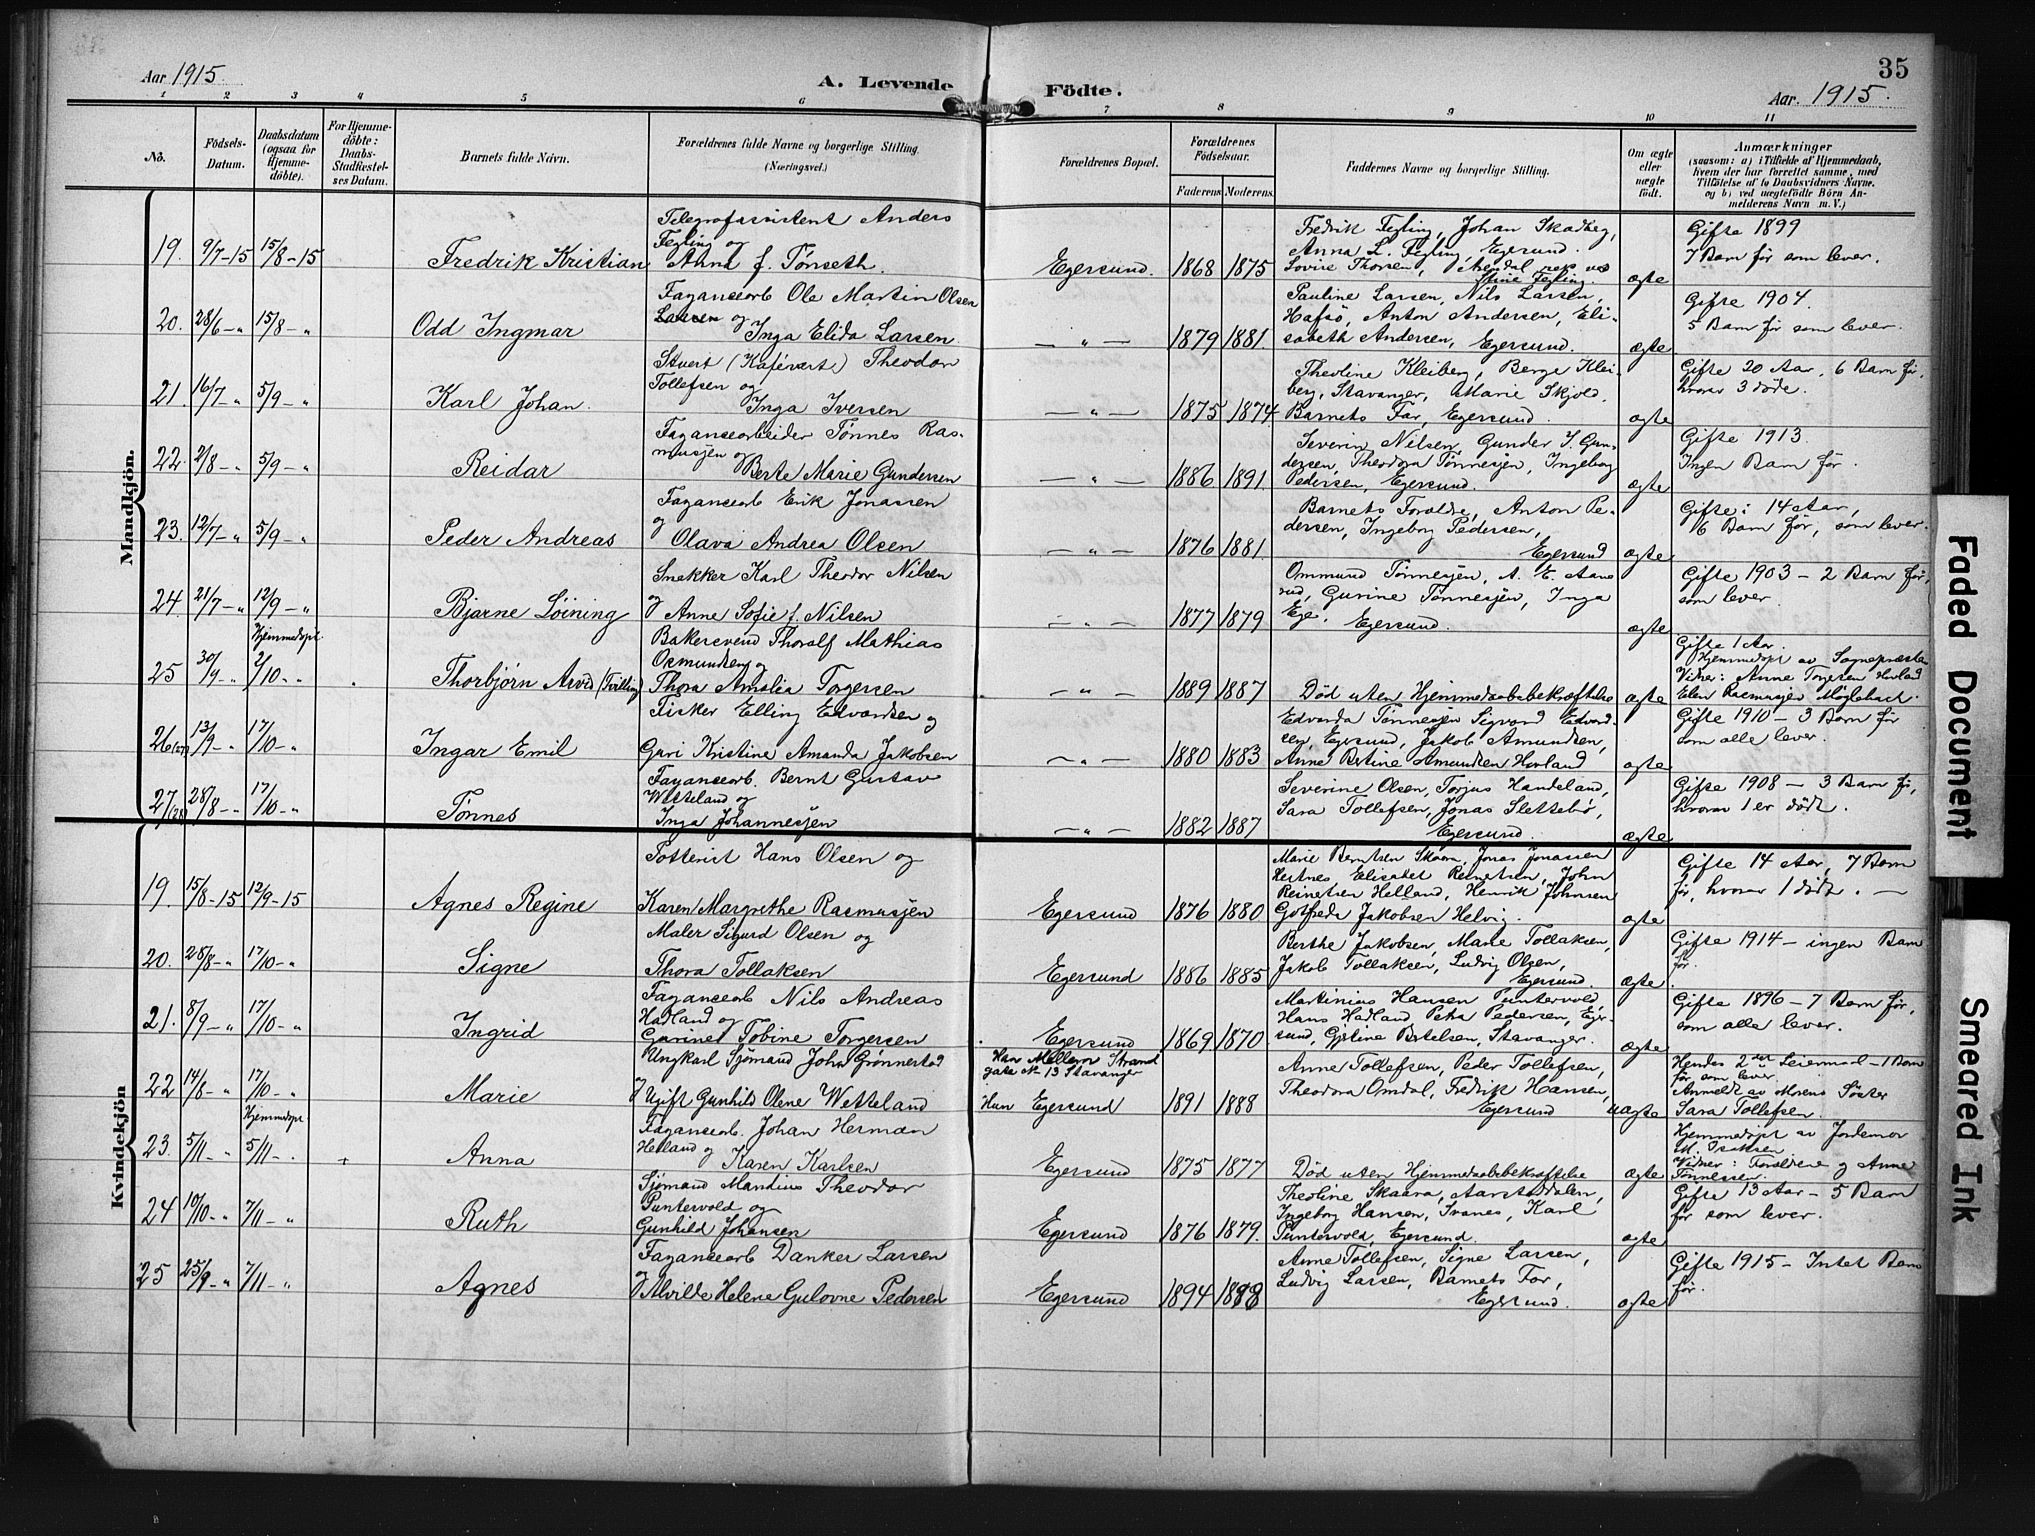 Aar 1915
A. Levende Födte.
Aar. 1915.
35
1 2 3 4 5 6 7 8 9 10 11
Nö.
Födsels-
Datum.
Daabsdatum
(ogsaa for
Hjemme-
döbte).
For Hjemme-
döbte:
Daabs-
Stadfæstel-
ses Datum.
Barnets fulde Navn.
Forældrenes fulde Navne og borgerlige Stilling.
(Næringsvei.)
Forældrenes Bopæl.
Forældrenes
Födselsaar.
Faderens. Moderens.
Faddernes Navne og borgerlige Stilling.
Om ægte
eller
uægte
födt.
Anmærkninger
(saasom: a) i Tilfælde af Hjemmedaab,
hvem der har forrettet samme, med
Tilföielse af to Daabsvidners Navne,
og b) ved uægtefödte Börn An-
melderens Navn m. V.)
Mandkjön.
19. 9/7-15 15/8-15 Fredrik Kristian
Telegrafassistent Anders
Fegling og
Anna f. Tönseth.
Egersund. 1868 1875
Fredrik Fegling, Johan Skadberg,
Anna L. Fegling, Egersund.
Lovise Thorsen, Arendal
Stine Fegling.
ægte
Gifte 1899
7 Barn før som lever.
20. 28/6-" 15/8-" Odd Ingmar
Fayancearb Ole Martin Olsen
Larsen og
Inga Elida Larsen
— " — 1879 1881.
Pauline Larsen, Nils Larsen,
Hafsö, Anton Andersen, Eli-
sabeth Andersen, Egersund.
ægte
Gifte 1904.
5 Barn før som lever.
21. 16/7-" 5/9-" Karl Johan.
Stuert (Kafévært) Theodor
Tollefsen og
Inga Iversen
— " — 1875 1874
Theoline Kleiberg, Berge Klei-
berg, Stavanger, Marie Skjold.
Barnets Far, Egersund.
ægte
Gifte 20 Aar, 6 Barn før,
hvorav 3 døde.
22. 2/8-" 5/9-" Reidar
Fayancearbeider Tönnes Ras-
mussen og
Berte Marie Gundersen
— " — 1886 1891.
Severin Nilsen, Gunder I. Gun-
dersen, Theodora Tønnessen, Ingeborg
Pedersen, Egersund.
ægte
Gifte 1913.
Ingen Barn før.
23. 12/7-" 5/9-" Peder Andreas
Fayancearb Erik Jonassen
og
Olava Andrea Olsen
— " — 1876 1881.
Barnets Forældre, Anton Pe-
dersen, Ingeborg Pedersen,
Egersund
ægte
Gifte i 14 Aar,
6 Barn før, som lever.
24. 21/7-" 12/9-" Bjarne Löining
Snekker Karl Theodor Nilsen
og Anne Sofie f. Nilsen
— " — 1877 1879
Ommund Tønnessen, A. E. Aase
Gurine Tønnessen, Inga
Ege. Egersund.
ægte
Gifte 1903 - 2 Barn før,
som lever.
25 30/9-" Hjemmedøpt 2/10-" Thorbjørn Arvid (Tvilling)
Bakersvend Thoralf Mathias
Osmundsen og
Thora Amalia Torgersen
— " — 1889 1887
Død uten Hjemmedaabsbekræftelse
ægte
Gifte 1 Aar.
Hjemmedøpt av Sogneprester
Vidner: Anne Torgersen Havland
Elen Rasmussen Møglebæst.
26 (27) 13/9-" 17/10-" Ingar Emil
Fisker Elling Edvardsen og
Guri Kristine Amanda Jakobsen
— " — 1880 1883
Edvarda Tønnessen Sigvard Edvard-
sen, Egersund, Jakob Amundsen,
Anne Bertine Amundsen Havland
ægte
Gifte 1910 - 3 Barn før
som alle lever.
27 (28) 28/8-" 17/10-" Tönnes
Fayancearb. Bernt Gustav
Wetteland og
Inga Johannessen
— " — 1882 1887
Severine Olsen, Torjus Handeland,
Sara Tollefsen, Jonas Slettebö,
Egersund.
ægte
Gifte 1908 — 3 Barn før,
hvorav 1 er dødt.
Kvindekjön
19. 15/8-15 12/9-15 Agnes Regine
Potterist Hans Olsen og
Karen Margrethe Rasmussen
Egersund 1876 1880
Marie Berntsen Skaara, Jonas Jonassen
Hertnes Elisabet Reinertsen, John
Reinertsen Helland, Henrik Johnsen
Gotfreda Jakobsen Helvig.
ægte
Gifte 14 Aar, 7 Barn
før, hvorav 1 dødt. —
20. 28/8-" 17/10-" Signe
Maler Sigurd Olsen og
Thora Tollaksen
Egersund 1886 1885
Berthe Jakobsen, Marie Tollaksen,
Jakob Tollaksen, Ludvig Olsen,
Egersund.
ægte.
Gifte 1914 — ingen Barn
før.
21. 8/9-" 17/10-" Ingrid
Fayancearb Nils Andreas
Hadland og
Gurine Tobine Torgersen
Egersund 1869 1870
Martinius Hansen Puntervold,
Hans Hadland Petra Pedersen, Eger-
sund, Gjertine Bertelsen, Stavanger.
ægte
Gifte 1896 - 7 Barn før,
som alle lever.
22 14/8-" 17/10-" Marie
Ungkarl Sjömand John Grønnestad
og Ugift Gunhild Olene Wetteland
Han Mellem Strand
gate No 13 Stavanger
Hun Egersund 1891 1888
Anne Tollefsen, Peder Tollefsen,
Theodora Omdal, Fredrik Hansen,
Egersund
uægte
Hendes 2det Leiermaal - 1 Barn
før som lever.
Anmeldt av Morens Søster
Sara Tollefsen.
23. 5/11-" Hjemmedøpt 5/11-" + Anna
Fayancearb. Johan Herman
Helland og
Karen Karlsen
Egersund 1875 1877
Død uten Hjemmedaabsbekræftelse
ægte
Hjemmedøpt av Jordemor
M. Isaksen
Vidner: Forældrene og Anne
Tønnessen.
24 10/10-" 7/11-" Ruth
Sjömand Mandius Theodor
Puntervold og
Gunhild Johansen
Egersund 1876 1879.
Theoline Skaara, Aarstaddalen,
Ingeborg Hansen, Svanes, Karl
Puntervold, Egersund.
ægte
Gifte 13 Aar - 5 Barn
før som lever.
25 25/9-" 7/11-" Agnes
Fayancearb Danker Larsen
og Alvilde Helene Gulovne Pedersen
Egersund 1894 1888
Anne Tollefsen, Signe Larsen,
Ludvig Larsen, Barnets Far,
Egersund.
ægte
Gifte 1915 - Intet Barn
før.
Faded Document
Smeared Ink